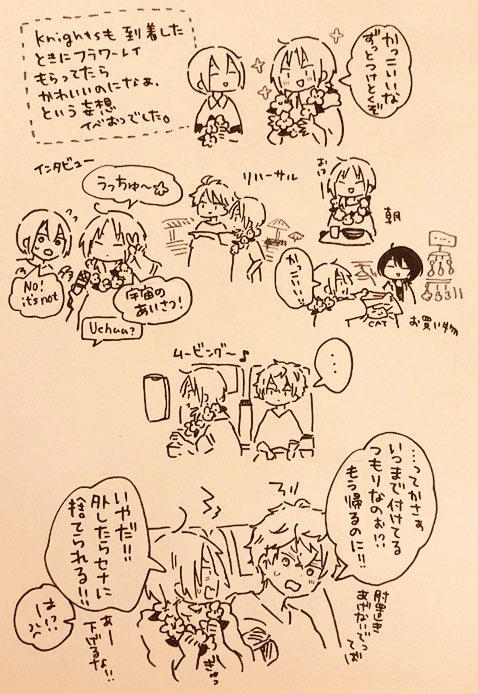 Knightsも到着した
ときにフラワーレイ
もらってたら
かわいいのになぁ、
という妄想
イベおつでした。
かっこいいな
ずっとつけとくぞ
インタビュー
うっちゅ〜☆
No!
it's not
宇宙の
あいさつ!
Uchuu?
リハーサル
朝
かっこいい!!
CAT
お買い物
ムービング〜♪
...
...ってかさぁ
いつまで付けてる
つもりなのぉ!?
もう帰るのに!!
いやだ!!
外したらセナに
捨てられる!!
は!?
あー
下げるな!!
ぎゅっ
肘置き
あげないでっ
てば